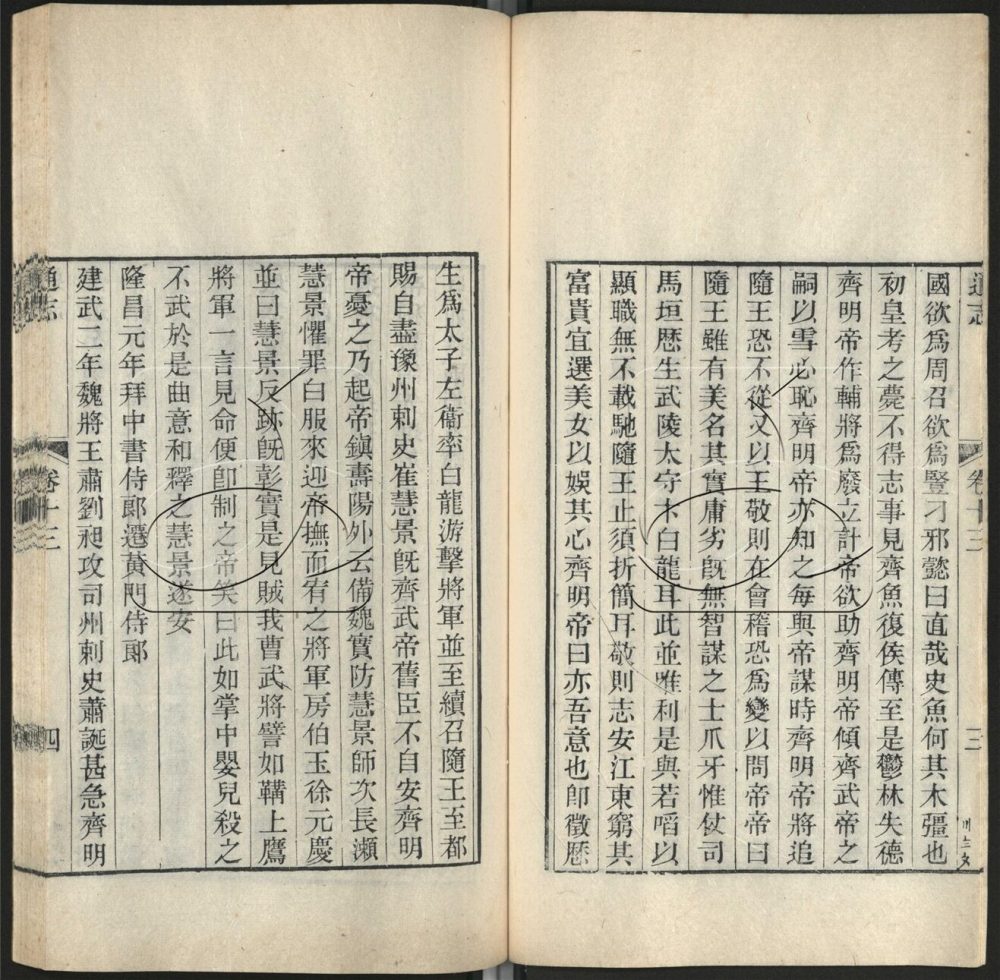 通志
卷十三
三
國欲爲周召欲爲豎刁邪懿曰直哉史魚何其木彊也
初皇考之薨不得志事見齊魚復侯傳至是鬱林失德
齊明帝作輔將爲廢立計帝欲助齊明帝傾齊武帝之
嗣以雪心恥齊明帝亦知之每與帝謀時齊明帝將追
隨王恐不從又以王敬則在會稽恐爲變以問帝帝曰
隨王雖有美名其實庸劣旣無智謀之士爪牙惟仗司
馬垣歷生武陵太守卞白龍耳此並唯利是與若啗以
顯職無不載馳隨王止須折簡耳敬則志安江東窮其
富貴宜選美女以娛其心齊明帝曰亦吾意也卽徵歷
生爲太子左衞率白龍游擊將軍並至續召隨王至都
賜自盡豫州刺史崔慧景旣齊武帝舊臣不自安齊明
帝憂之乃起帝鎭壽陽外云備魏實防慧景師次長瀨
慧景懼罪白服來迎帝撫而宥之將軍房伯玉徐元慶
並曰慧景反跡旣彰實是見賊我曹武將譬如鞲上鷹
將軍一言見命便卽制之帝笑曰此如掌中嬰兒殺之
不武於是曲意和釋之慧景遂安
隆昌元年拜中書侍郞遷黃門侍郞
建武二年魏將王肅劉昶攻司州刺史蕭誕甚急齊明
通志
卷十三
四